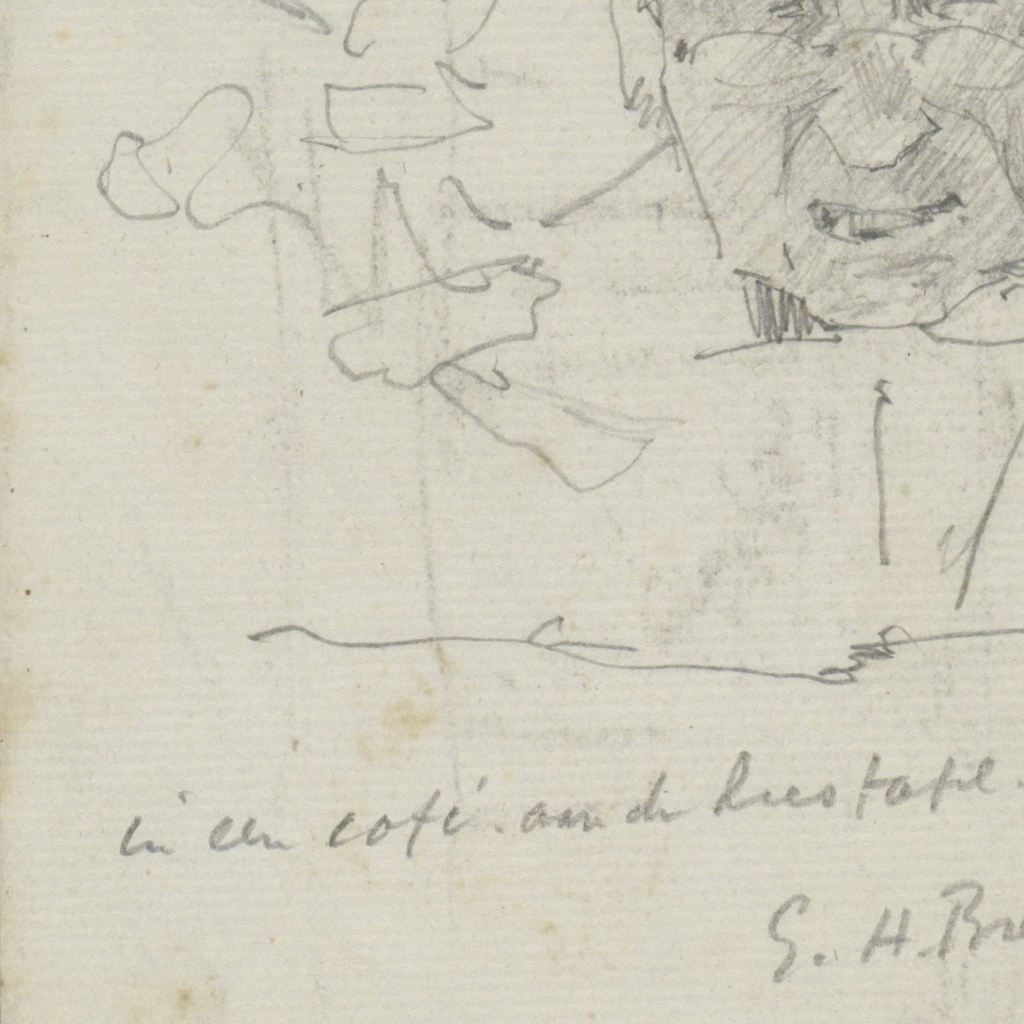 in een café aan de leestafel.
G. H. Bre